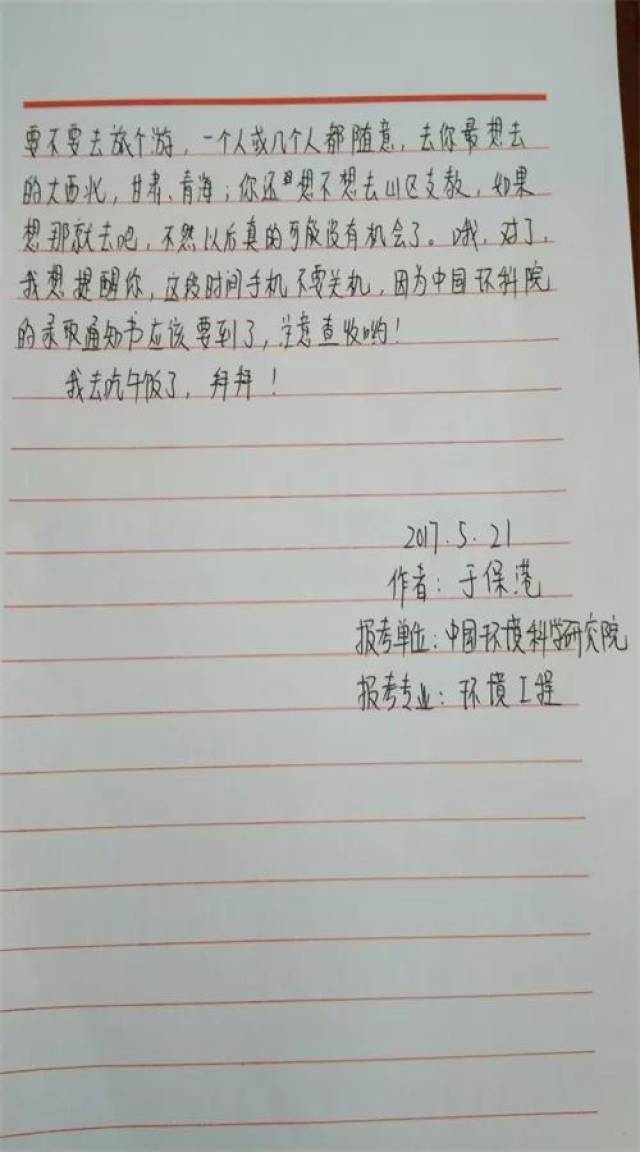 要不要去旅个游，一个人或几个人都随意，去你最想去
的大西北，甘肃、青海；你还想不想去山区支教，如果
想那就去吧，不然以后真的可能没有机会了。哦，对了，
我想提醒你，这段时间手机不要关机，因为中国环科院
的录取通知书应该要到了，注意查收哟！
我去吃午饭了，拜拜！
2017.5.21
作者：于保港
报考单位：中国环境科学研究院
报考专业：环境工程